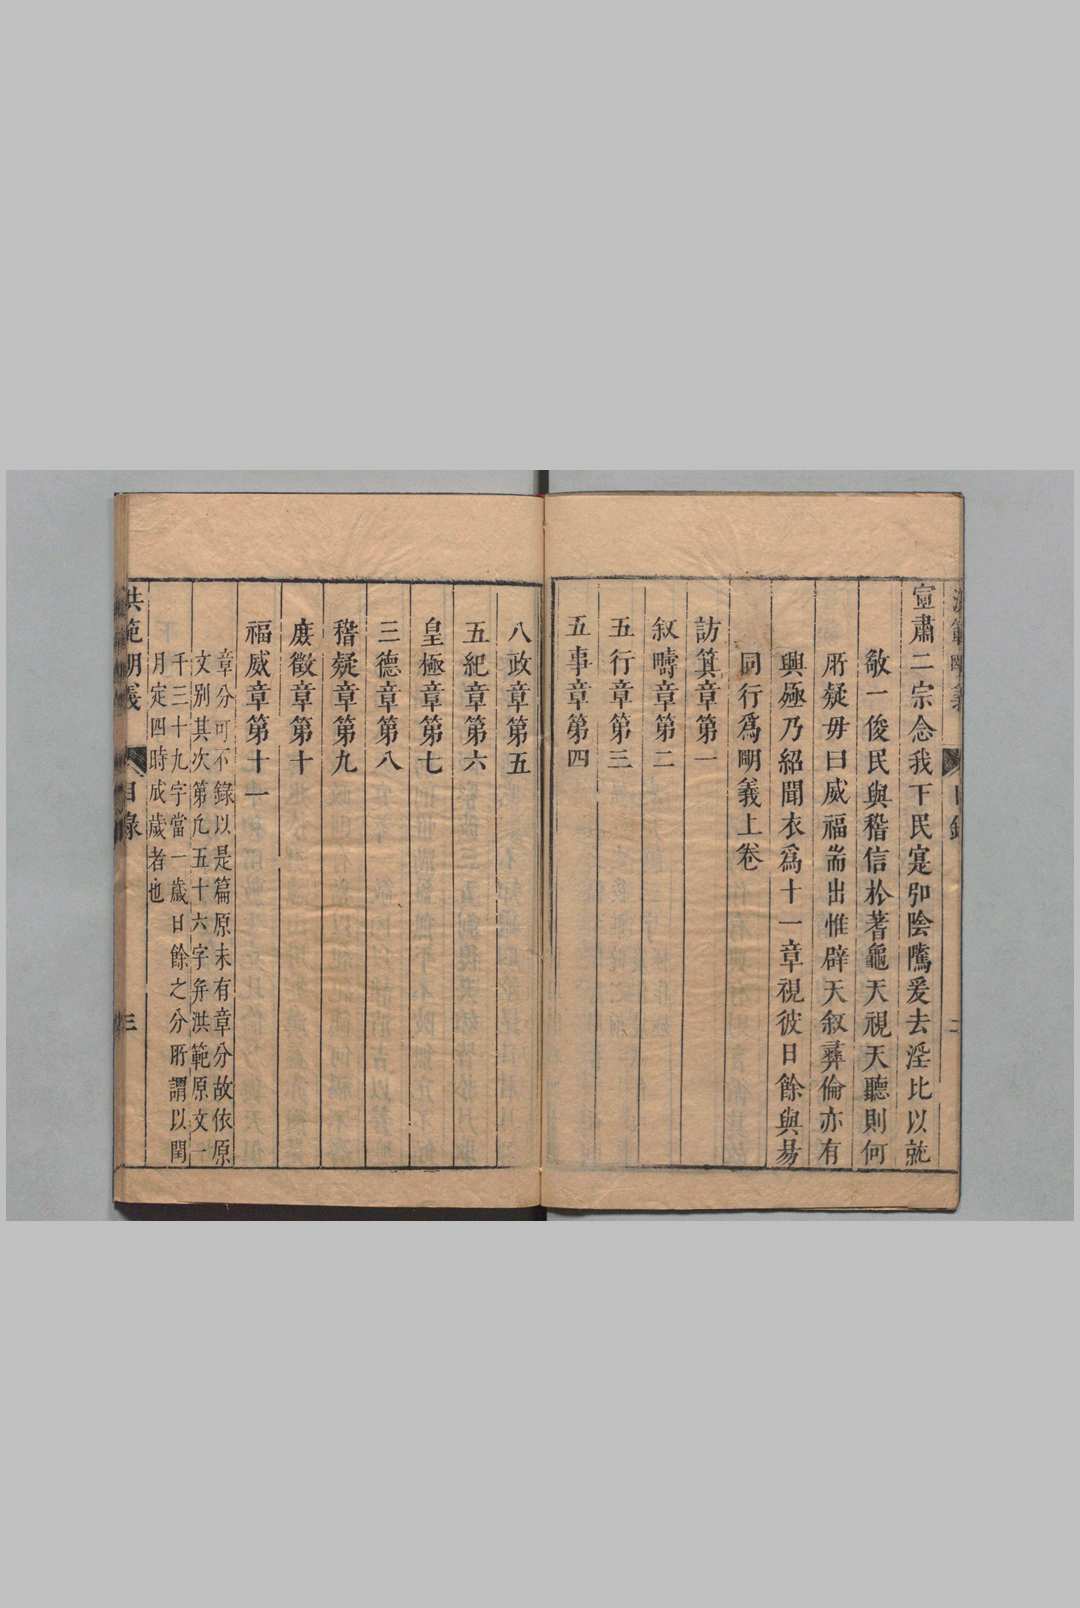 宣肅二宗念我下民寔卶陰隲爰去淫比以就
敬一俊民與稽信於蓍龜天視天聽則何
所疑毋曰威福耑出惟辟天叙彝倫亦有
與極乃紹聞衣為十一章視彼日餘與易
同行為朙義上卷
訪箕章第一
叙疇章第二
五行章第三
五事章第四
八政章第五
五紀章第六
皇極章第七
三德章第八
稽疑章第九
庶徵章第十
福威章第十一
章分可不錄以是篇原未有章分故依原
文別其次第凢五十六字并洪範原文一
千三十九字當一歲日餘之分所謂以閏
月定四時成歲者也
洪範明義
目錄
三